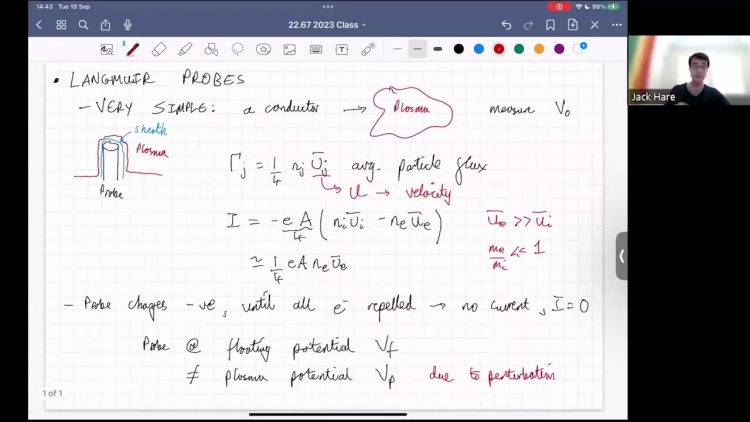 14:43 Tue 19 Sep
98%
22.67 2023 Class
• LANGMUIR PROBES
- VERY SIMPLE: a conductor → Plasma measure V₀
sheath
Plasma
Probe
Γj = 1/4 nj Ūj avg. particle flux
↳ u → velocity
I = -eA/4 (ni ūi - ne ūe) ūe >> ūi
≃ 1/4 e A ne ūe me/mi << 1
- Probe charges -ve, until all e⁻ repelled → no current, I = 0
Probe @ floating potential Vf
≠ plasma potential Vp due to perturbation
1 of 1
Jack Hare